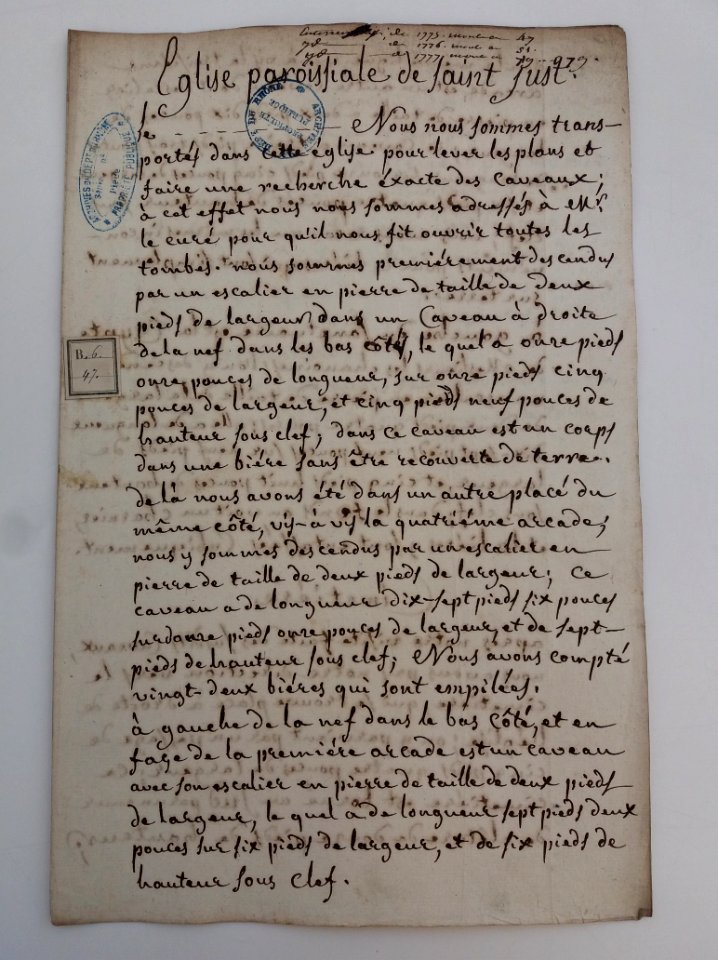 de 1775. mont a 47
yd de 1776. mont a 51.
yd de 1777 mont a
Eglise paroissiale de saint Just.
Nous nous sommes trans-
portés dans cette eglise pour lever les plans et
faire une recherche éxacte des caveaux;
à cet effet nous nous sommes adressés à Mr.
le curé pour qu'il nous fit ouvrir toutes les
tombes. nous sommes premiérement descendus
par un escalier en pierre de taille de deux
pieds de largeur, dans un Caveau à droite
de la nef dans les bas côtés, le quel a onze pieds
onze pouces de longueur, sur onze pieds cinq
pouces de largeur, et cinq pieds neuf pouces de
hauteur sous clef; dans ce caveau est un corps
dans une biére sans être recouverte de terre.
de là nous avons été dans un autre placé du
même côté, vis-à vis la quatriéme arcade;
nous y sommes descendus par un escalier en
pierre de taille de deux pieds de largeur; ce
caveau a de longueur dix-sept pieds six pouces
sur douze pieds onze pouces de largeur, et de sept-
pieds de hauteur sous clef; Nous avons compté
vingt-deux biéres qui sont empilées.
à gauche de la nef dans le bas côté, et en
face de la premiére arcade est un caveau
avec son escalier en pierre de taille de deux pieds
de largeur, le quel à de longueur sept pieds deux
pouces sur six pieds de largeur, et de six pieds de
hauteur sous clef.
B. 6.
47.
ARCHIVES DU DEPT DU RHONE
PROPRIETE PUBLIQUE